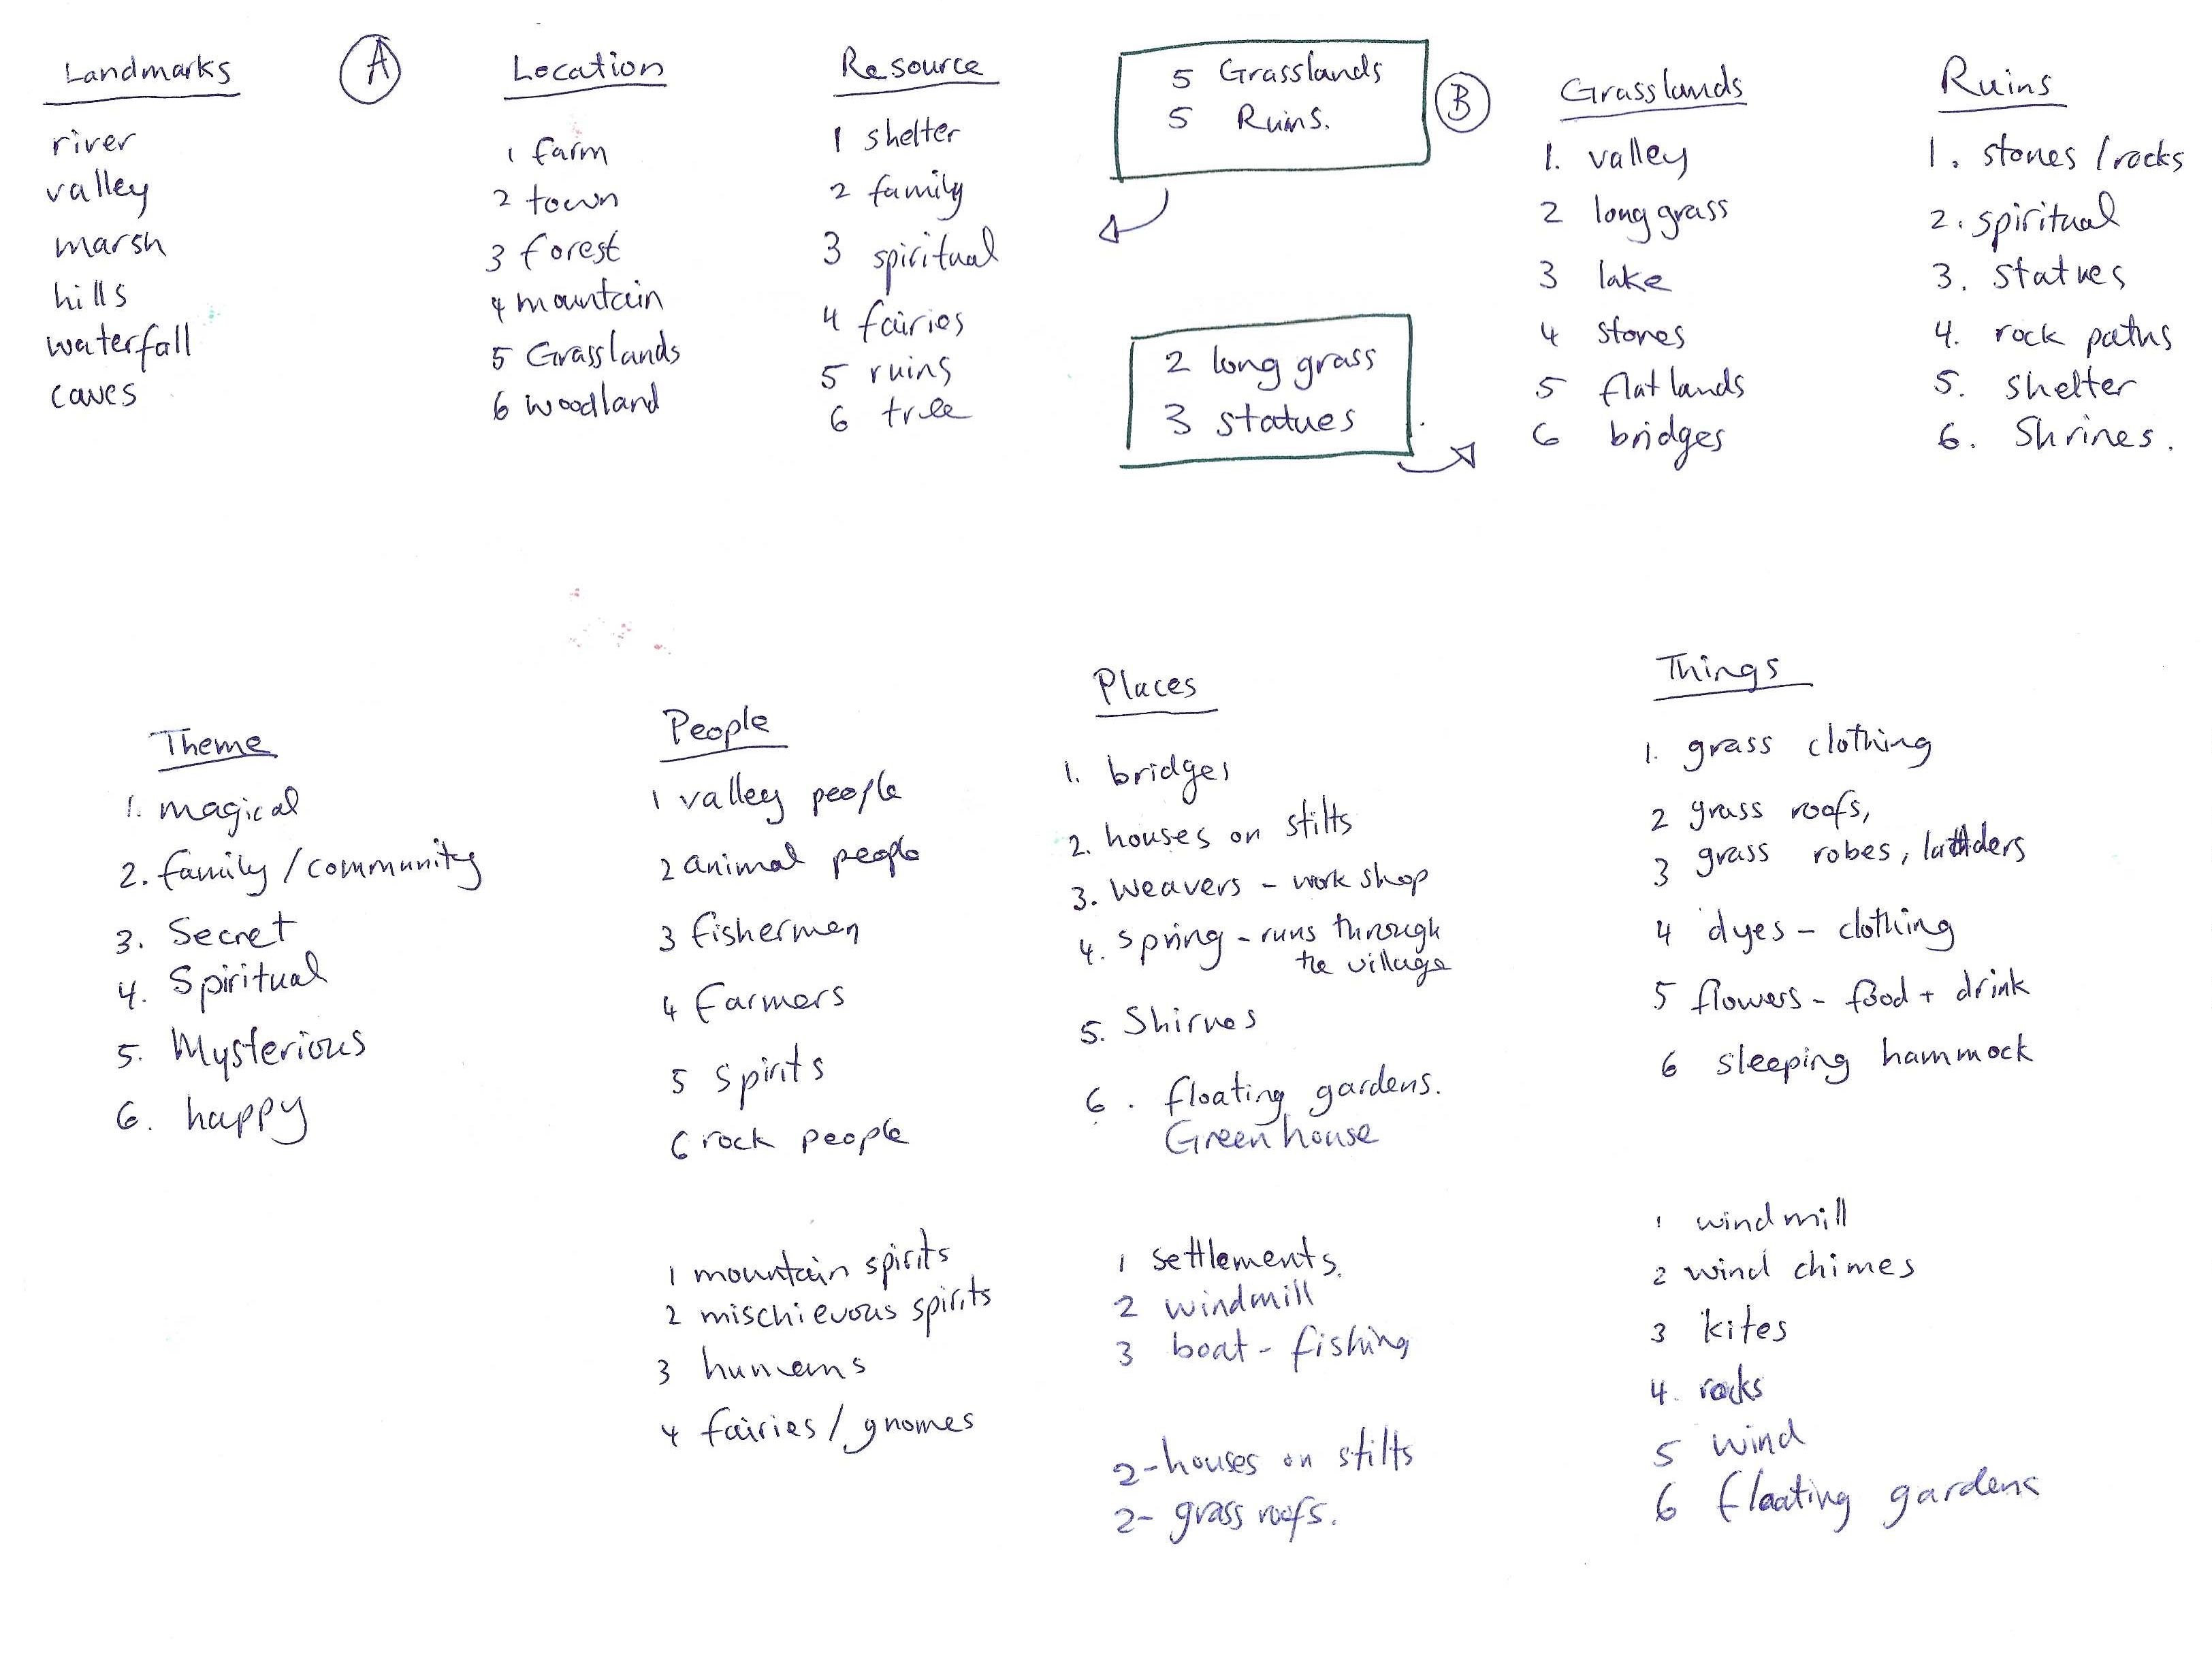 Landmarks
river
valley
marsh
hills
waterfall
caves
A
Location
1 farm
2 town
3 forest
4 mountain
5 Grasslands
6 woodland
Resource
1 shelter
2 family
3 spiritual
4 fairies
5 ruins
6 tree
5 Grasslands
5 Ruins.
2 long grass
3 statues
B
Grasslands
1. valley
2 long grass
3 lake
4 stones
5 flatlands
6 bridges
Ruins
1. stones / rocks
2. spiritual
3. statues
4. rock paths
5. shelter
6. Shrines.
Theme
1. magical
2. family / community
3. Secret
4. Spiritual
5. Mysterious
6. happy
People
1 valley people
2 animal people
3 fishermen
4 farmers
5 spirits
6 rock people
1 mountain spirits
2 mischievous spirits
3 humans
4 fairies / gnomes
Places
1. bridges
2. houses on stilts
3. weavers - work shop
4. spring - runs through
the village
5. Shirnes
6. floating gardens.
Green house
1 settlements.
2 windmill
3 boat - fishing
2 - houses on stilts
2 - grass roofs.
Things
1. grass clothing
2 grass roofs,
3 grass robes, ladders
4 dyes - clothing
5 flowers - food + drink
6 sleeping hammock
1 windmill
2 wind chimes
3 kites
4. rocks
5 wind
6 floating gardens